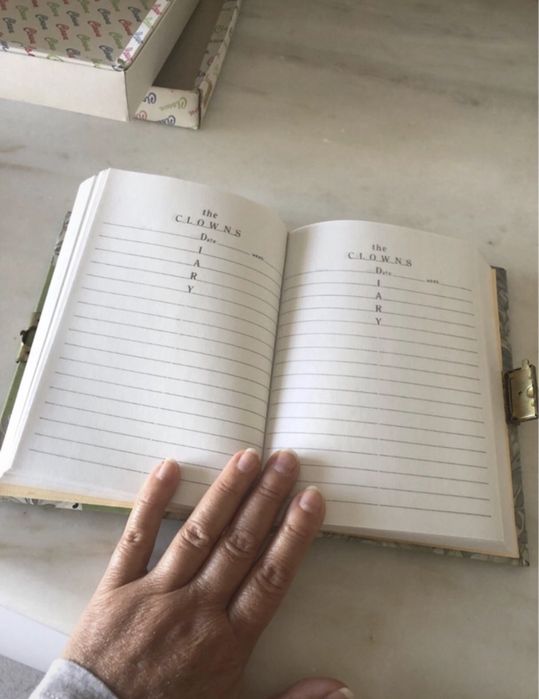 the
CLOWNS
Date
I
A
R
Y
the
CLOWNS
Date
I
A
R
Y